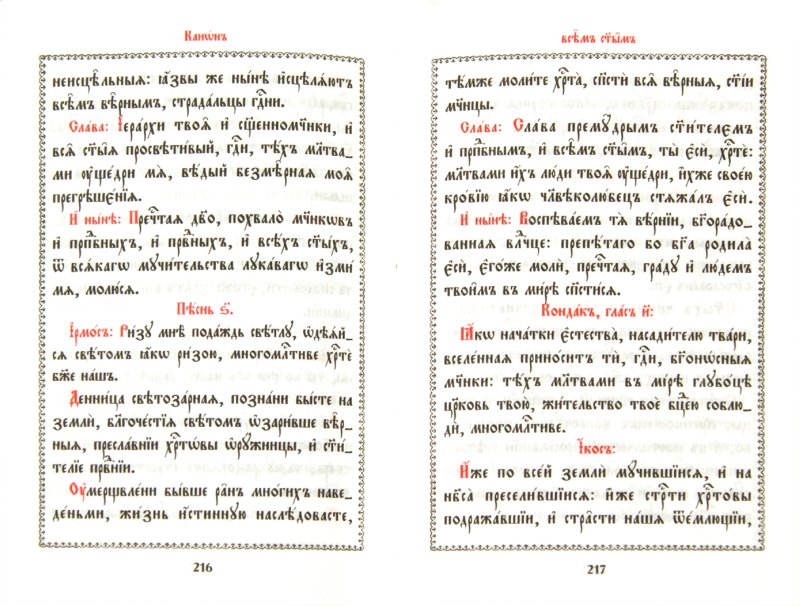 Канѡ́нъ
неисцѣ̑льныѧ: ꙗ҆́звы же ны́нѣ и҆сцѣлѧ́ютъ
всѣ̑мъ вѣ̑рнымъ, страда́льцы гдⷭ҇ни.
Сла́ва: І҆ера́рхи твоѧ̑ и҆ сщ҃енномч҃нки, и҆
всѧ̑ ст҃ы̑ѧ просвѣти́вый, гдⷭ҇и, тѣ́хъ мл҃тва_
ми ᲂу҆ще́дри мѧ̀, вѣ́дый безмѣ̑рнаѧ моѧ̑
прегрѣшє́нїѧ.
И҆ ны́нѣ: Пречⷭ҇таѧ дв҃о, похвало̀ мч҃нкѡвъ
и҆ прпⷣбныхъ, и҆ првⷣныхъ, и҆ всѣ́хъ ст҃ы́хъ,
ѿ всѧ́кагѡ мучи́тельства лꙋка́вагѡ и҆зми́
мѧ, молю́сѧ.
Пѣ́снь ѕ҃.
І҆рмо́съ: Ри́зꙋ мнѣ̀ пода́ждь свѣ́тлꙋ, ѡ҆дѣѧ́й_
сѧ свѣ́томъ ꙗ҆́кѡ ри́зою, многомлⷭ҇тиве хрⷭ҇тѐ
бж҃е на́шъ.
Денни́ца свѣтоза́рнаѧ, по́знани бы́сте на
землѝ, бл҃гоче́стїѧ свѣ́томъ ѡ҆зари́вше вѣ̑р_
ныѧ, пресла́внїи хрⷭ҇тѡ́вы ѡ҆рꙋ́жницы, и҆ ст҃и́_
телїе првⷣнїи.
Оу҆мерщвле́ни бы́вше ра́нъ мно́гихъ наве_
де́ньми, жи́знь и҆́стиннꙋю наслѣ́довасте,
216
всѣ̑мъ ст҃ы̑мъ
тѣ́мже моли́те хрⷭ҇та̀, сп҃стѝ всѧ̑ вѣ̑рныѧ, ст҃і́и
мч҃нцы.
Сла́ва: Сла́ва премꙋ̑дрымъ ст҃и́телємъ
и҆ прпⷣбнымъ, и҆ всѣ̑мъ ст҃ы̑мъ, ты̀ є҆сѝ, хрⷭ҇тѐ:
мл҃твами и҆́хъ лю́ди твоѧ̑ ᲂу҆ще́дри, и҆̀хже свое́ю
кро́вїю ꙗ҆́кѡ чл҃вѣколю́бецъ стѧжа́лъ є҆сѝ.
И҆ ны́нѣ: Воспѣва́емъ тѧ̀ вѣ́рнїи, бг҃ора́до_
ванная влⷣчце: препѣ́таго бо бг҃а родила̀
є҆сѝ, є҆го́же молѝ, пречⷭ҇таѧ, гра́дꙋ и҆ лю́демъ
твои̑мъ въ ми́рѣ сп҃сти́сѧ.
Конда́къ, гла́съ и҃:
Ꙗ҆́кѡ нача́тки є҆стества̀, насади́телю тва́ри,
вселе́ннаѧ прино́ситъ ти̑, гдⷭ҇и, бг҃онѡ́сныѧ
мч҃нки: тѣ́хъ мл҃твами въ ми́рѣ глꙋбо́цѣ
цр҃ковь твою̀, жи́тельство твоѐ бцⷣею соблю_
дѝ, многомлⷭ҇тиве.
І҆́косъ:
И҆̀же по все́й землѝ мꙋчи́вшїисѧ, и҆ на
нб҃са̀ пресели́вшїисѧ: и҆̀же стрⷭ҇ти хрⷭ҇тѡ́вы
подража́вшїи, и҆ стра̑сти на́шѧ ѿе́млющїи,
217